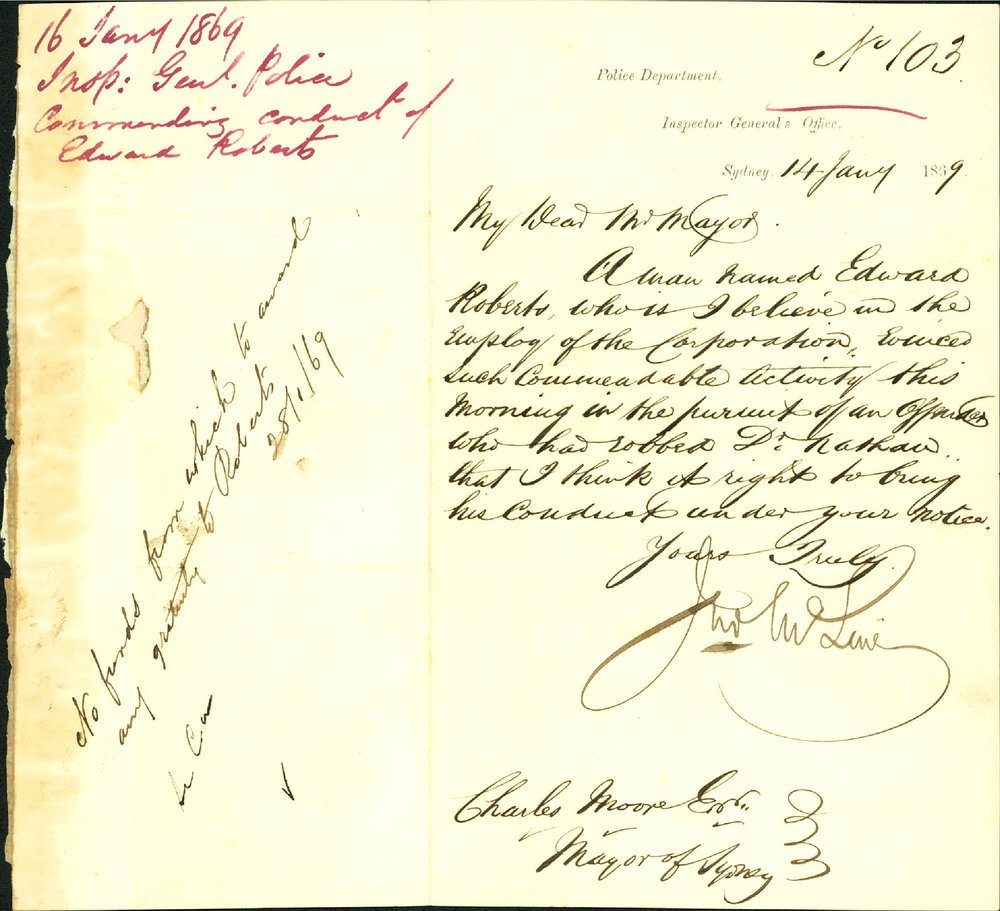 16 Jany 1869
Insp: Genl. Police
Commending conduct of
Edward Roberts
No funds from which
any gratuity to Roberts to award
28/1/69
C.M
No 103.
Police Department,
Inspector General's Office,
Sydney, 14 Jany 1869.
My Dear Mr Mayor.
A man named Edward
Roberts, who is I believe in the
Employ of the Corporation, Evinced
such Commendable Activity this
Morning in the pursuit of an Offender
who had robbed Dr Nathan
that I think it right to bring
his Conduct under your notice.
Yours Truly.
Jno McLerie
Charles Moore Esqr.
Mayor of Sydney